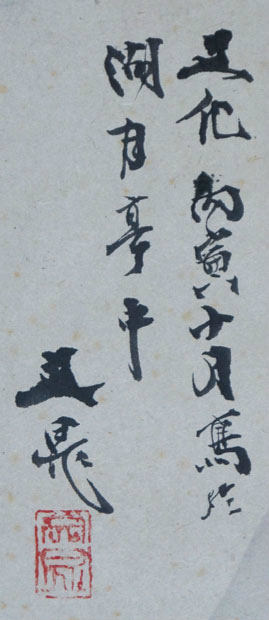 文化丙寅十月寫於
湖月亭中
文晁